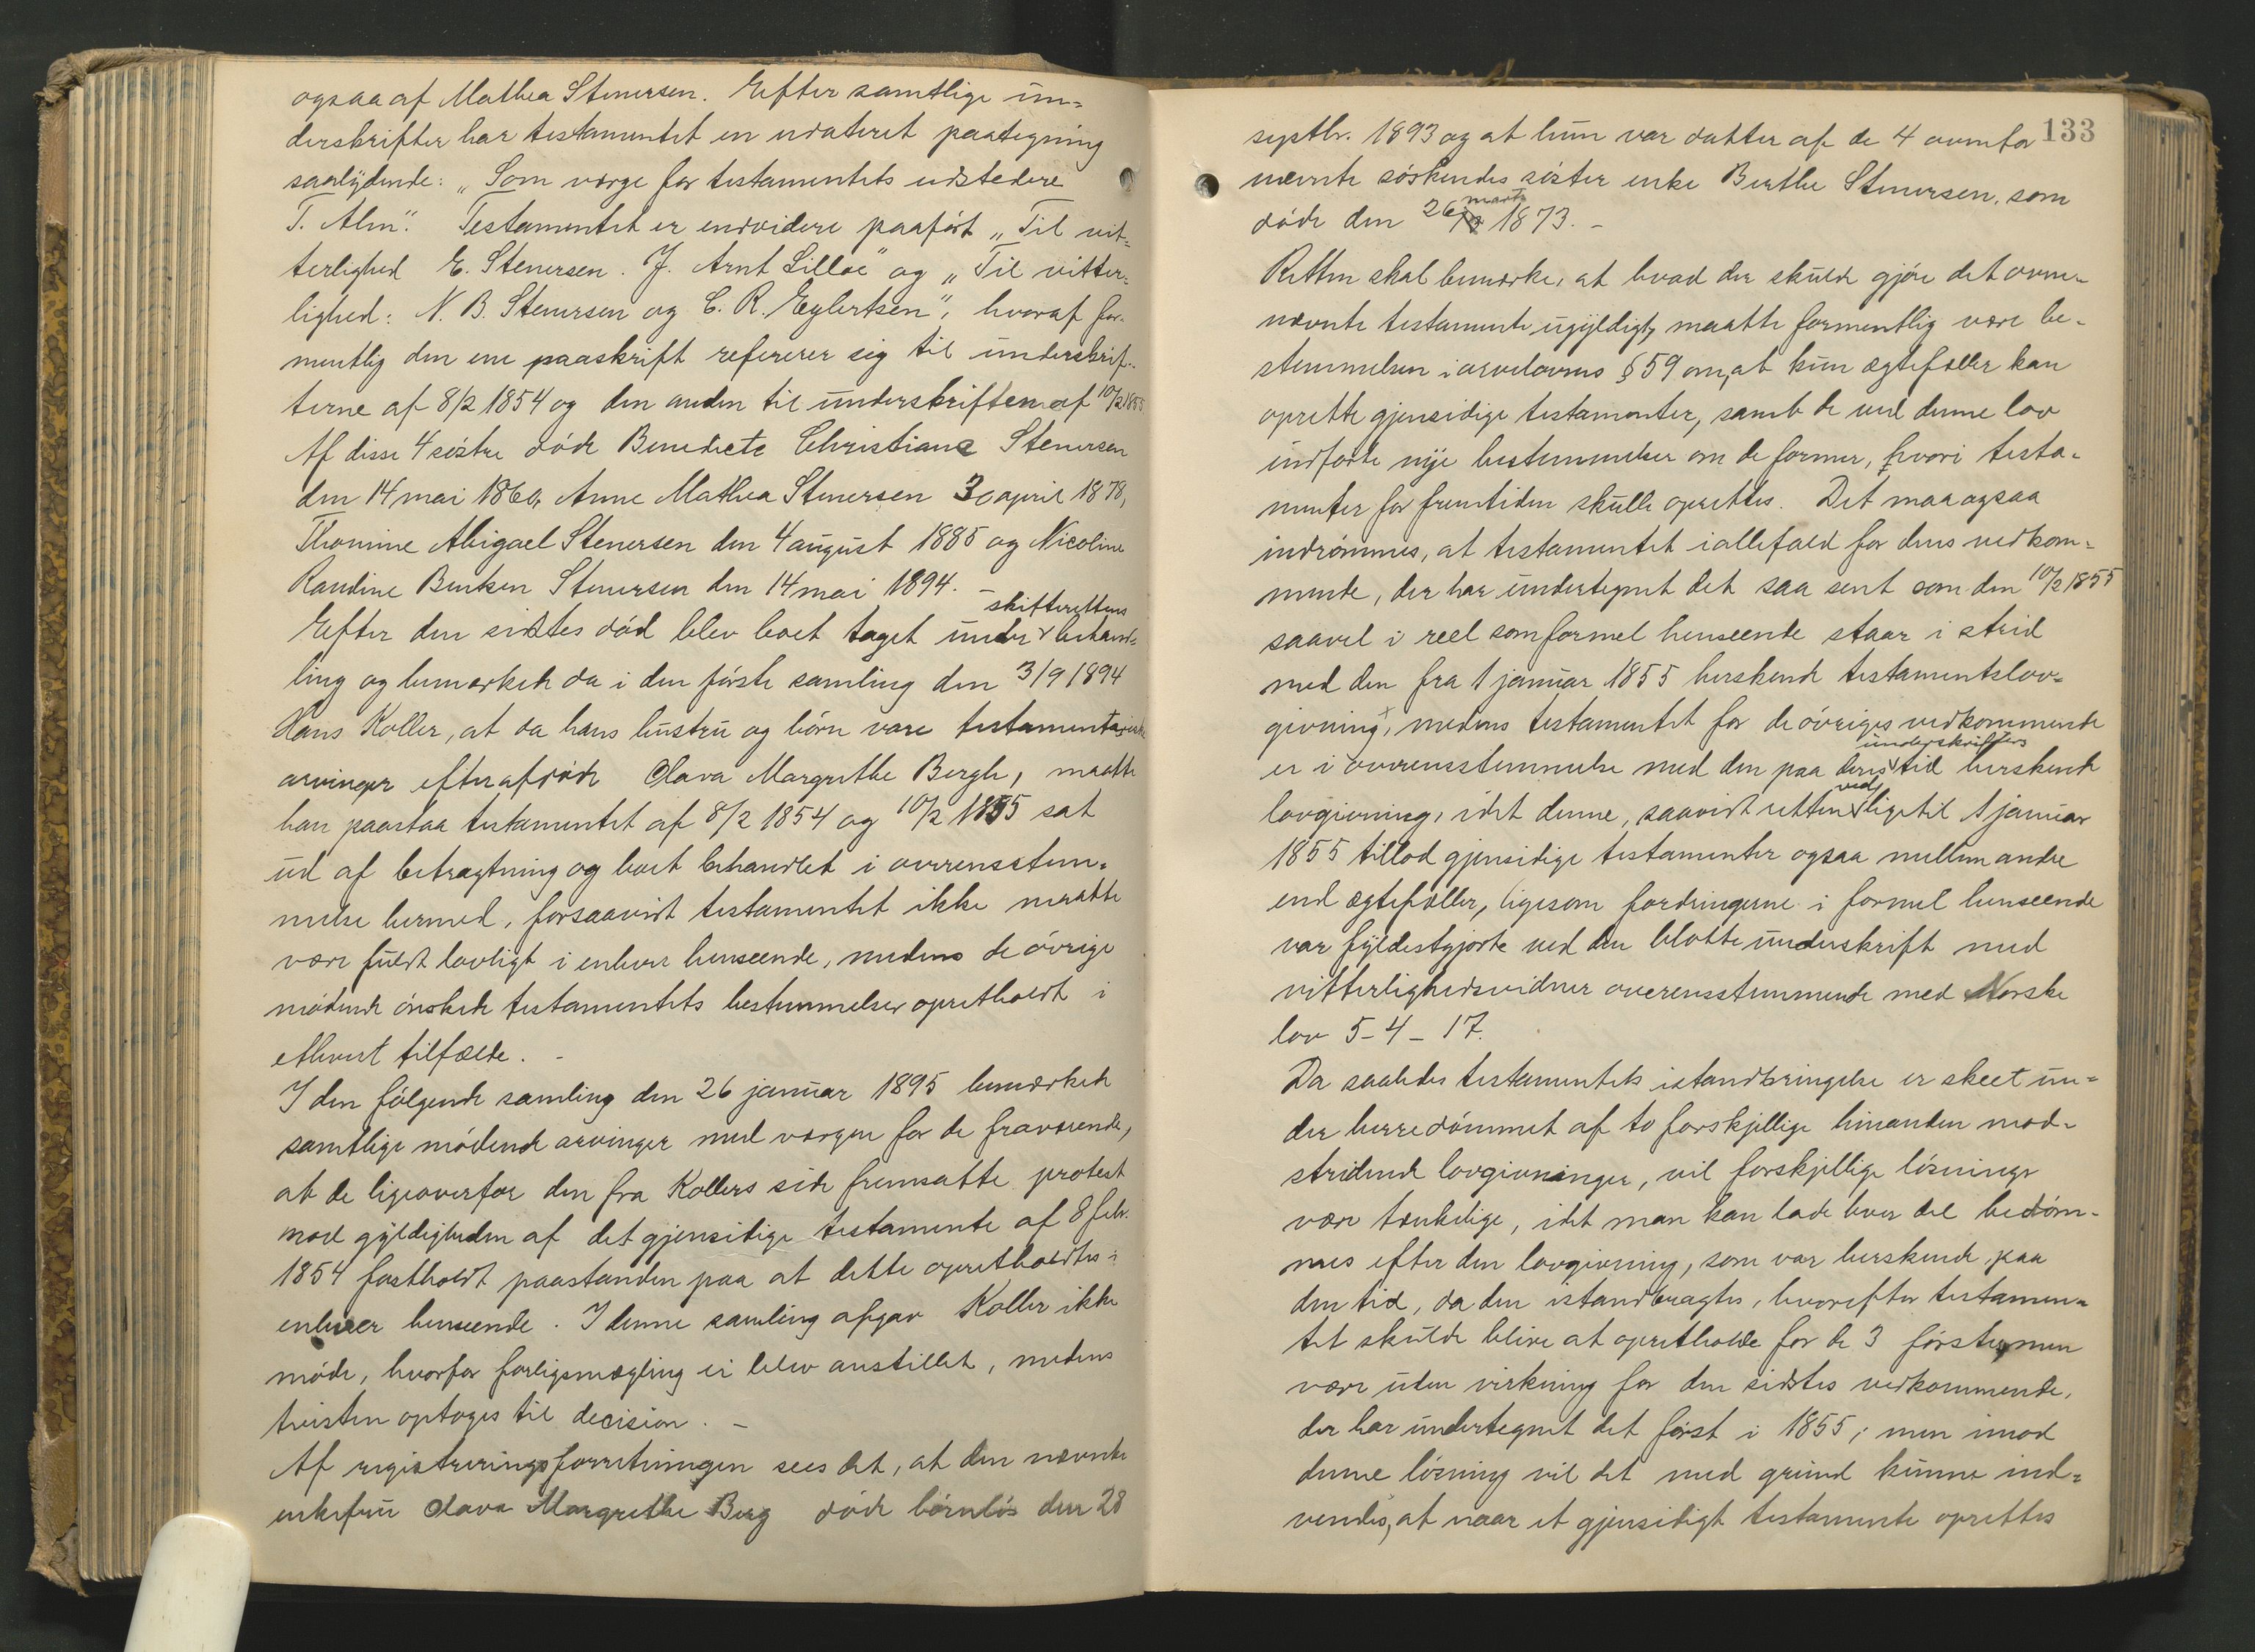 ogsaa af Mathea Stenersen. Efter samtlige un=
derskrifter har testamentet en udateret paategning
saalydende: „Som værge for testamentets udstedere
T. Alm". Testamentet er endvidere paaført „Til vit=
terlighed E. Stenersen. J. Arnt Lilloe" og „Til vitter=
lighed: N. B. Stenersen og C. R. Eylertsen", hvoraf for-
mentlig den ene paaskrift refererer sig til underskrif-
terne af 8/2 1854 og den anden til underskriften af 10/2 1855
Af disse 4 søstre døde Benedicte Christiane Stenersen
den 14 mai 1860, Anne Mathea Stenersen 30 april 1878,
Thomine Abigael Stenersen den 4 august 1885 og Nicoline
Randine Benken Stenersen den 14 mai 1894. –
skifterettens
Efter den sidstes død blev boet taget under behand=
ling og bemærkede da i den første samling den 3/9 1894
Hans Koller, at da hans hustru og børn vare testamentariske
arvinger efter afdøde Olava Margrethe Bergh, maatte
han paastaa testamentet af 8/2 1854 og 10/2 1855 sat
ud af betragtning og boet behandlet i overensstem=
melse hermed, forsaavidt testamentet ikke maatte
være fuldt lovligt i enhver henseende, medens de øvrige
mødende ønskede testamentets bestemmelser opretholdt i
ethvert tilfælde. –
I den følgende samling den 26 januar 1895 bemærkede
samtlige mødende arvinger med værgen for de fraværende,
at de ligeoverfor den fra Kollers side fremsatte protest
mod gyldigheden af det gjensidige testamente af 8 febr.
1854 fastholdt paastanden paa at dette opretholdtes i
enhver henseende. I denne samling afgav Koller ikke
møde, hvorfor forligsmægling ei blev anstillet, medens
tvisten optoges til decision. –
Af registreringsforretningen sees det, at den nævnte
enkefru Olava Margrethe Berg døde børnløs den 28
133
septbr. 1893 og at hun var datter af de 4 ovenfor
nævnte søskendes søster enke Berthe Stenersen, som
marts
døde den 26 1873. –
Retten skal bemærke, at hvad der skulde gjøre det oven-
nævnte testamente ugyldigt, maatte formentlig være be-
stemmelsen i arvelovens § 59 om, at kun ægtefæller kan
oprette gjensidige testamenter, samt de ved denne lov
indførte nye bestemmelser om de former, hvori testa-
menter for fremtiden skulle oprettes. Det maa ogsaa
indrømmes, at testamentet iallefald for dens vedkom=
mende, der har undertegnet det saa sent som den 10/2 1855
saavel i reel som formel henseende staar i strid
med den fra 1 januar 1855 herskende testamentslov=
givning, medens testamentet for de øvriges vedkommende
underskrifters
er i overensstemmelse med den paa deres tid herskende
ved
lovgivning, idet denne, saavidt retten ligetil 1 januar
1855 tillod gjensidige testamenter ogsaa mellem andre
end ægtefæller, ligesom fordringerne i formel henseende
var fyldestgjorte ved den blotte underskrift med
vitterlighedsvidner overensstemmende med Norske
lov 5–4–17.
Da saaledes testamentets istandbringelse er skeet un=
der herredømmet af to forskjellige hinanden mod-
stridende lovgivninger, vil forskjellige løsninger
være tænkelige, idet man kan lade hver del bedøm-
mes efter den lovgivning, som var herskende paa
den tid, da den istandbragtes, hvorefter testamen=
tet skulde blive at opretholde for de 3 første, men
være uden virkning for den sidstes vedkommende,
der har undertegnet det først i 1855; men imod
denne løsning vil det med grund kunne ind=
vendes, at naar et gjensidigt testamente oprettes